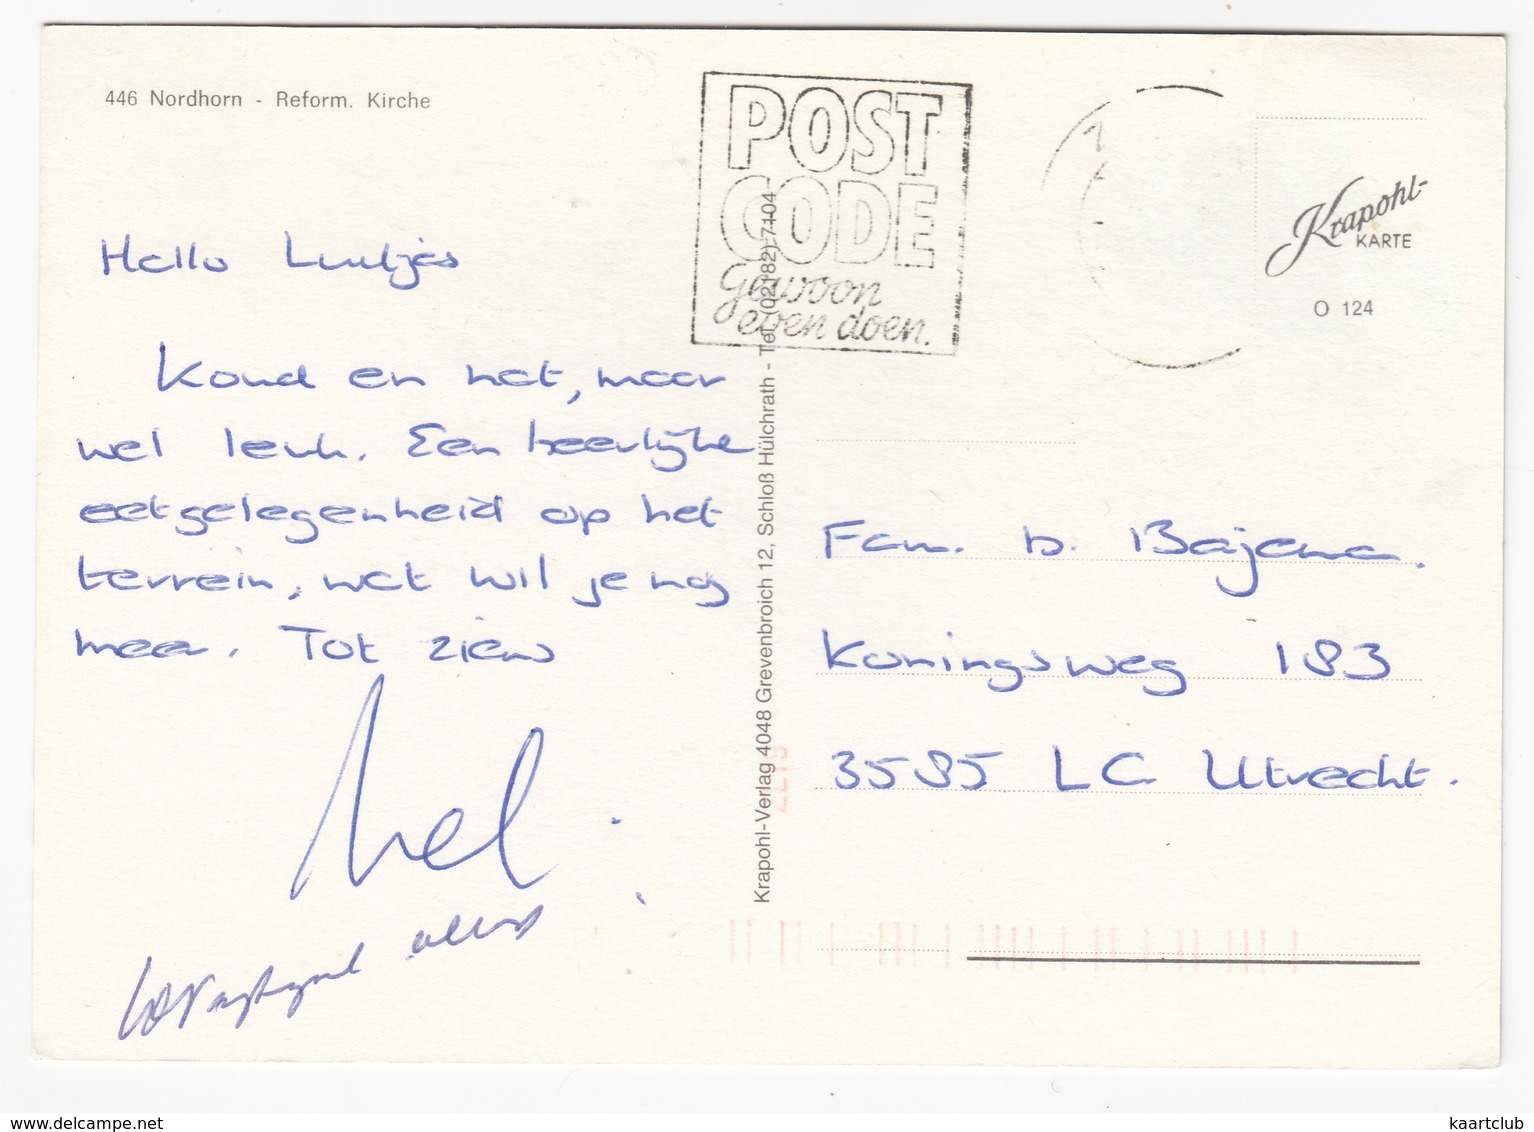 446 Nordhorn - Reform. Kirche
POST
CODE
Gewoon
even doen.
Krapohl-
KARTE
O 124
Hallo Luutjes
Koud en nat, maar
wel leuk. Een heerlijke
eetgelegenheid op het
terrein, wat wil je nog
meer. Tot ziens
Krapohl-Verlag 4048 Grevenbroich 12, Schloß Hülchrath - Tel. (02182) 7104
Fam. b. Bajema.
Koningsweg 183
3585 LC Utrecht.
www.delcampe.net
kaartclub